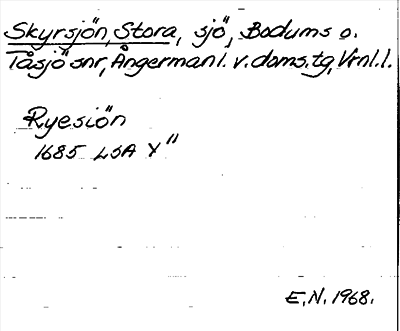 Skyrsjön, Stora, sjö, Bodums o.
Tåsjö snr, Ångermanl. v. doms.tg, Vrnl.l.
Ryesiön
1685 LSA Y"
E.N. 1968.